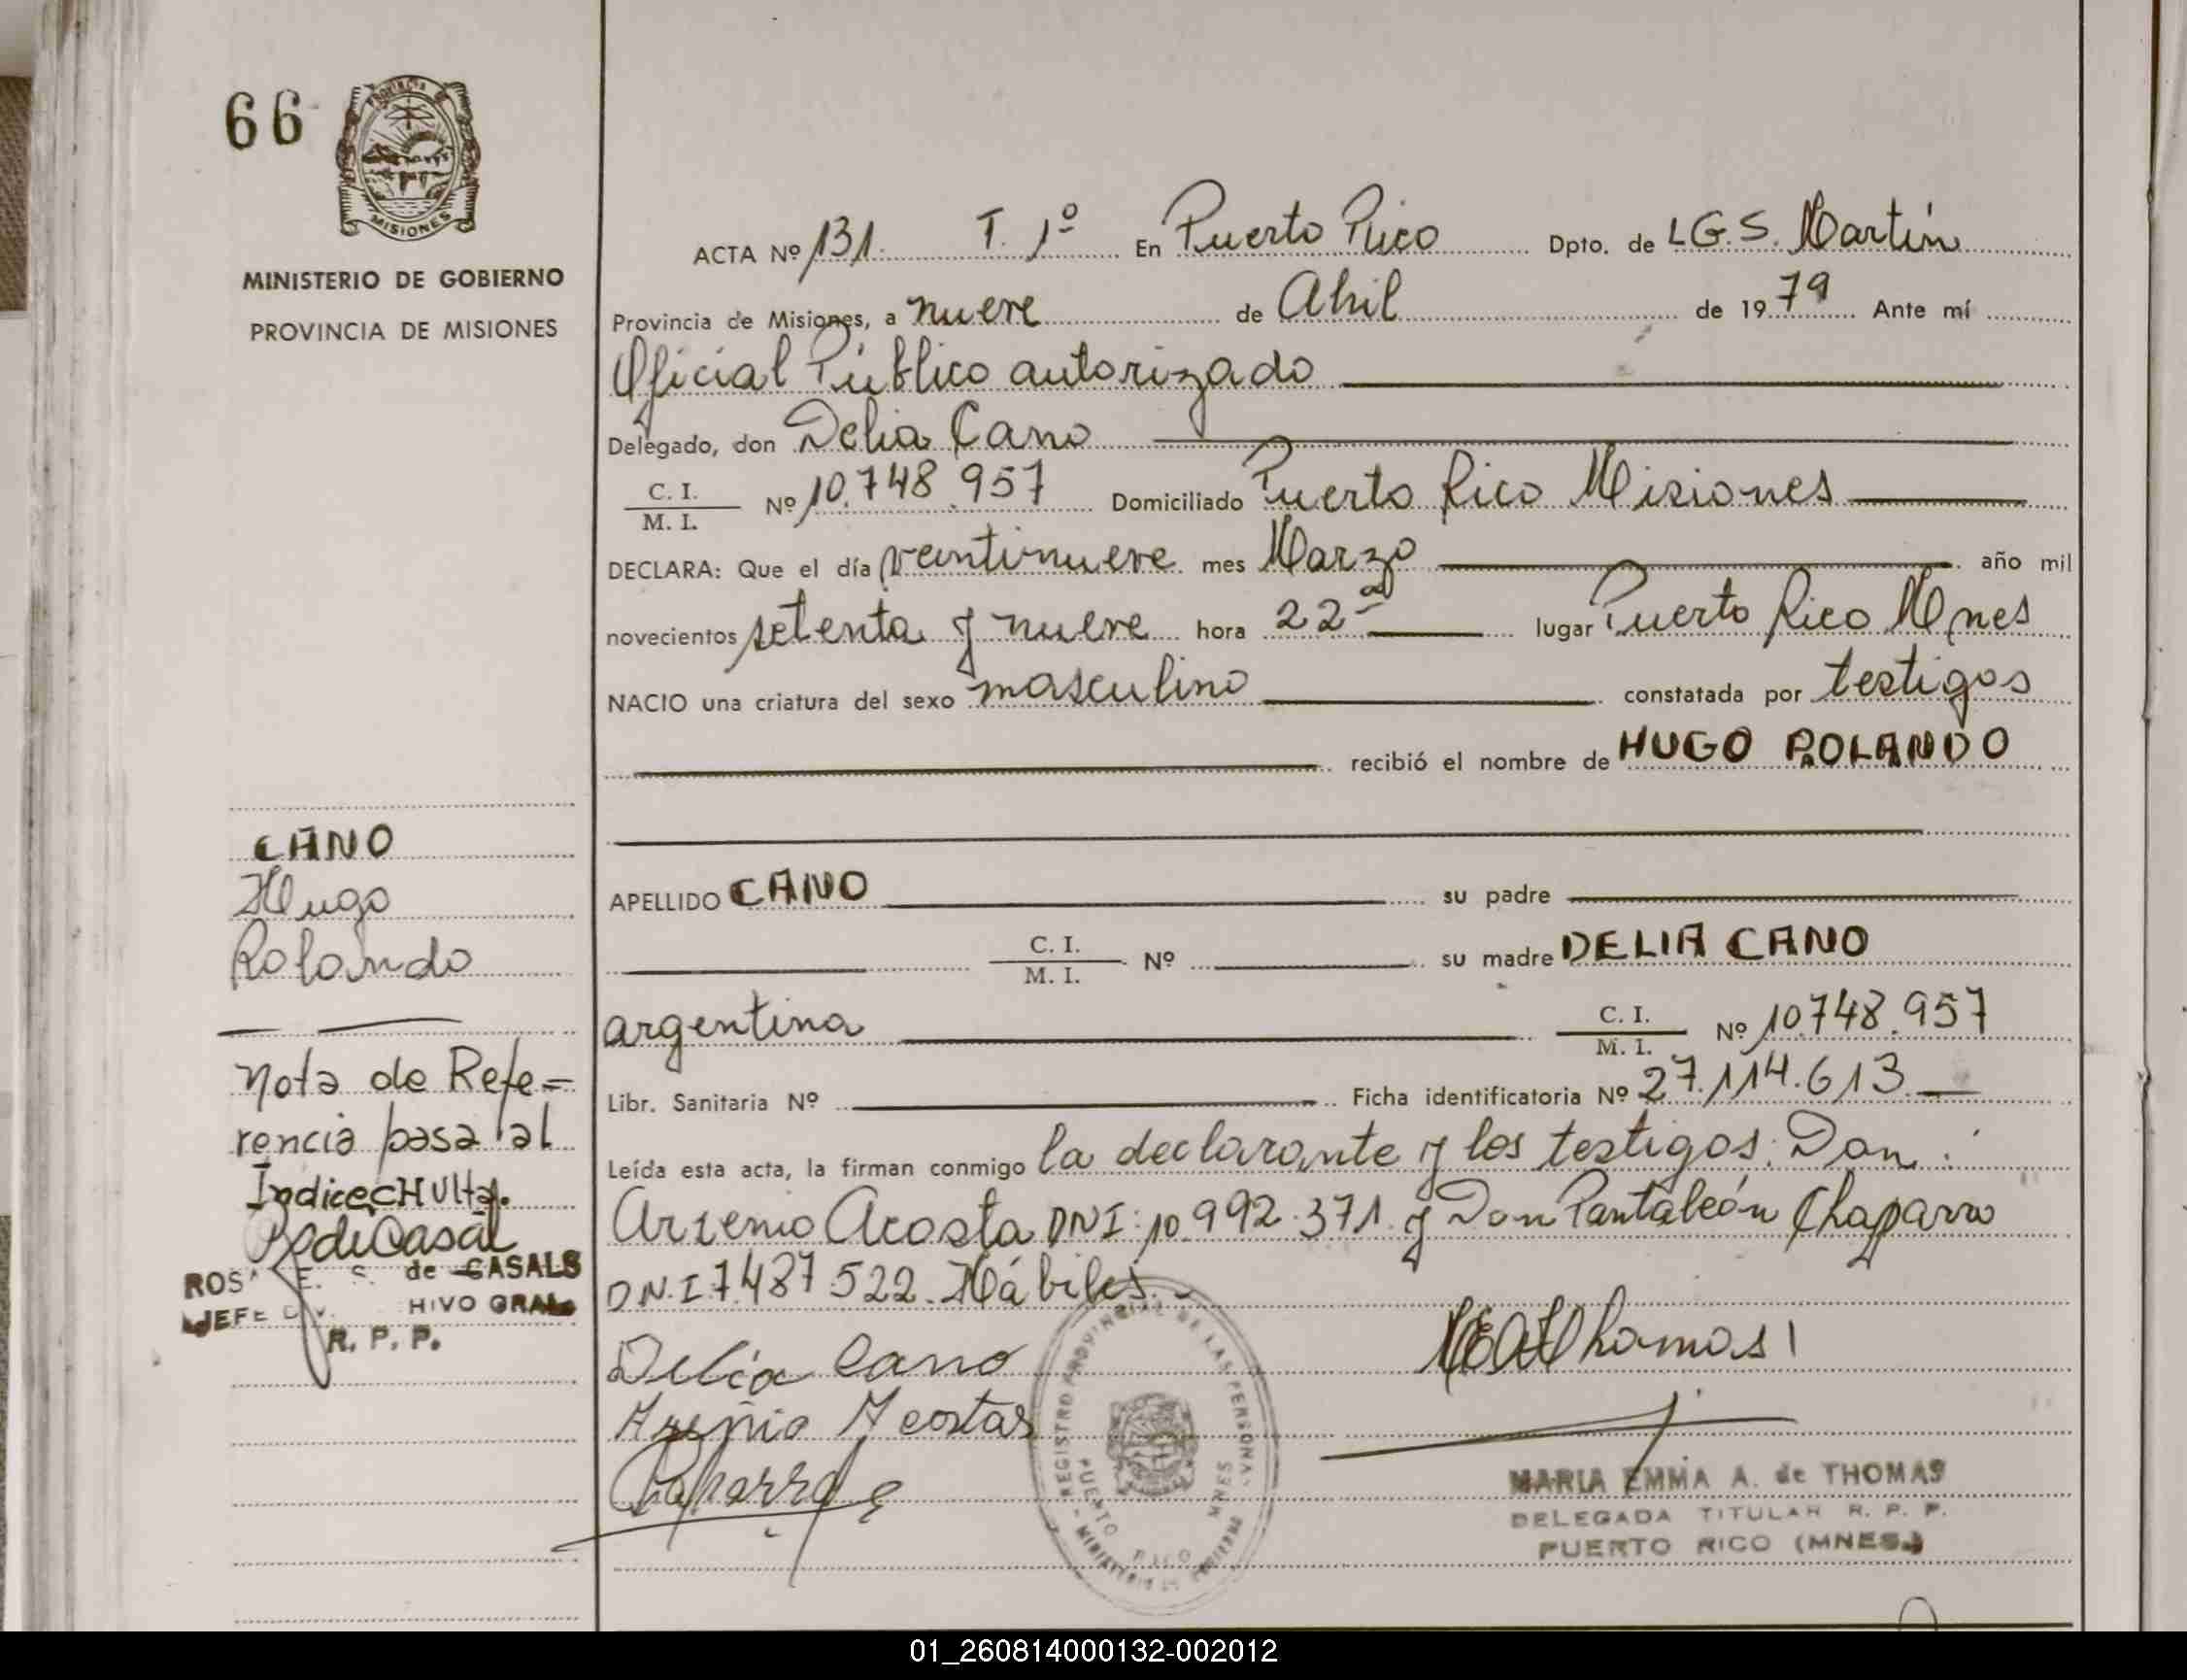 66
MISIONES
MINISTERIO DE GOBIERNO
PROVINCIA DE MISIONES
ACTA Nº 131. T. 1º En Puerto Rico Dpto. de L.G.S. Martín
Provincia de Misiones, a nueve de Abril de 1979 Ante mí
Oficial Público autorizado
Delegado, don Delia Cano
C. I.
M. I. Nº 10.748.957 Domiciliado Puerto Rico Misiones
DECLARA: Que el día veintinueve mes Marzo año mil
novecientos setenta y nueve hora 22 lugar Puerto Rico Mnes
NACIO una criatura del sexo masculino constatada por testigos
recibió el nombre de HUGO ROLANDO
APELLIDO CANO su padre
C. I.
M. I. Nº su madre DELIA CANO
argentina C. I.
M. I. Nº 10.748.957
Libr. Sanitaria Nº Ficha identificatoria Nº 27.114.613
Leída esta acta, la firman conmigo la declarante y los testigos: Don:
Arsenio Acosta DNI: 10.992.371 y Don Pantaleón Chaparro
D.N.I 7.487.522. Hábiles.-
Delia Cano
Acostas
Chaparro
MARIA EMMA A. de THOMAS
DELEGADA TITULAR R. P. P.
PUERTO RICO (MNES.)
REGISTRO PROVINCIAL DE LAS PERSONAS
PUERTO RICO MNES
CANO
Hugo
Rolando
Nota de Refe=
rencia pasa al
Indice
de CASALS
JEFE HIVO GRAL
R. P. P.
01_260814000132-002012